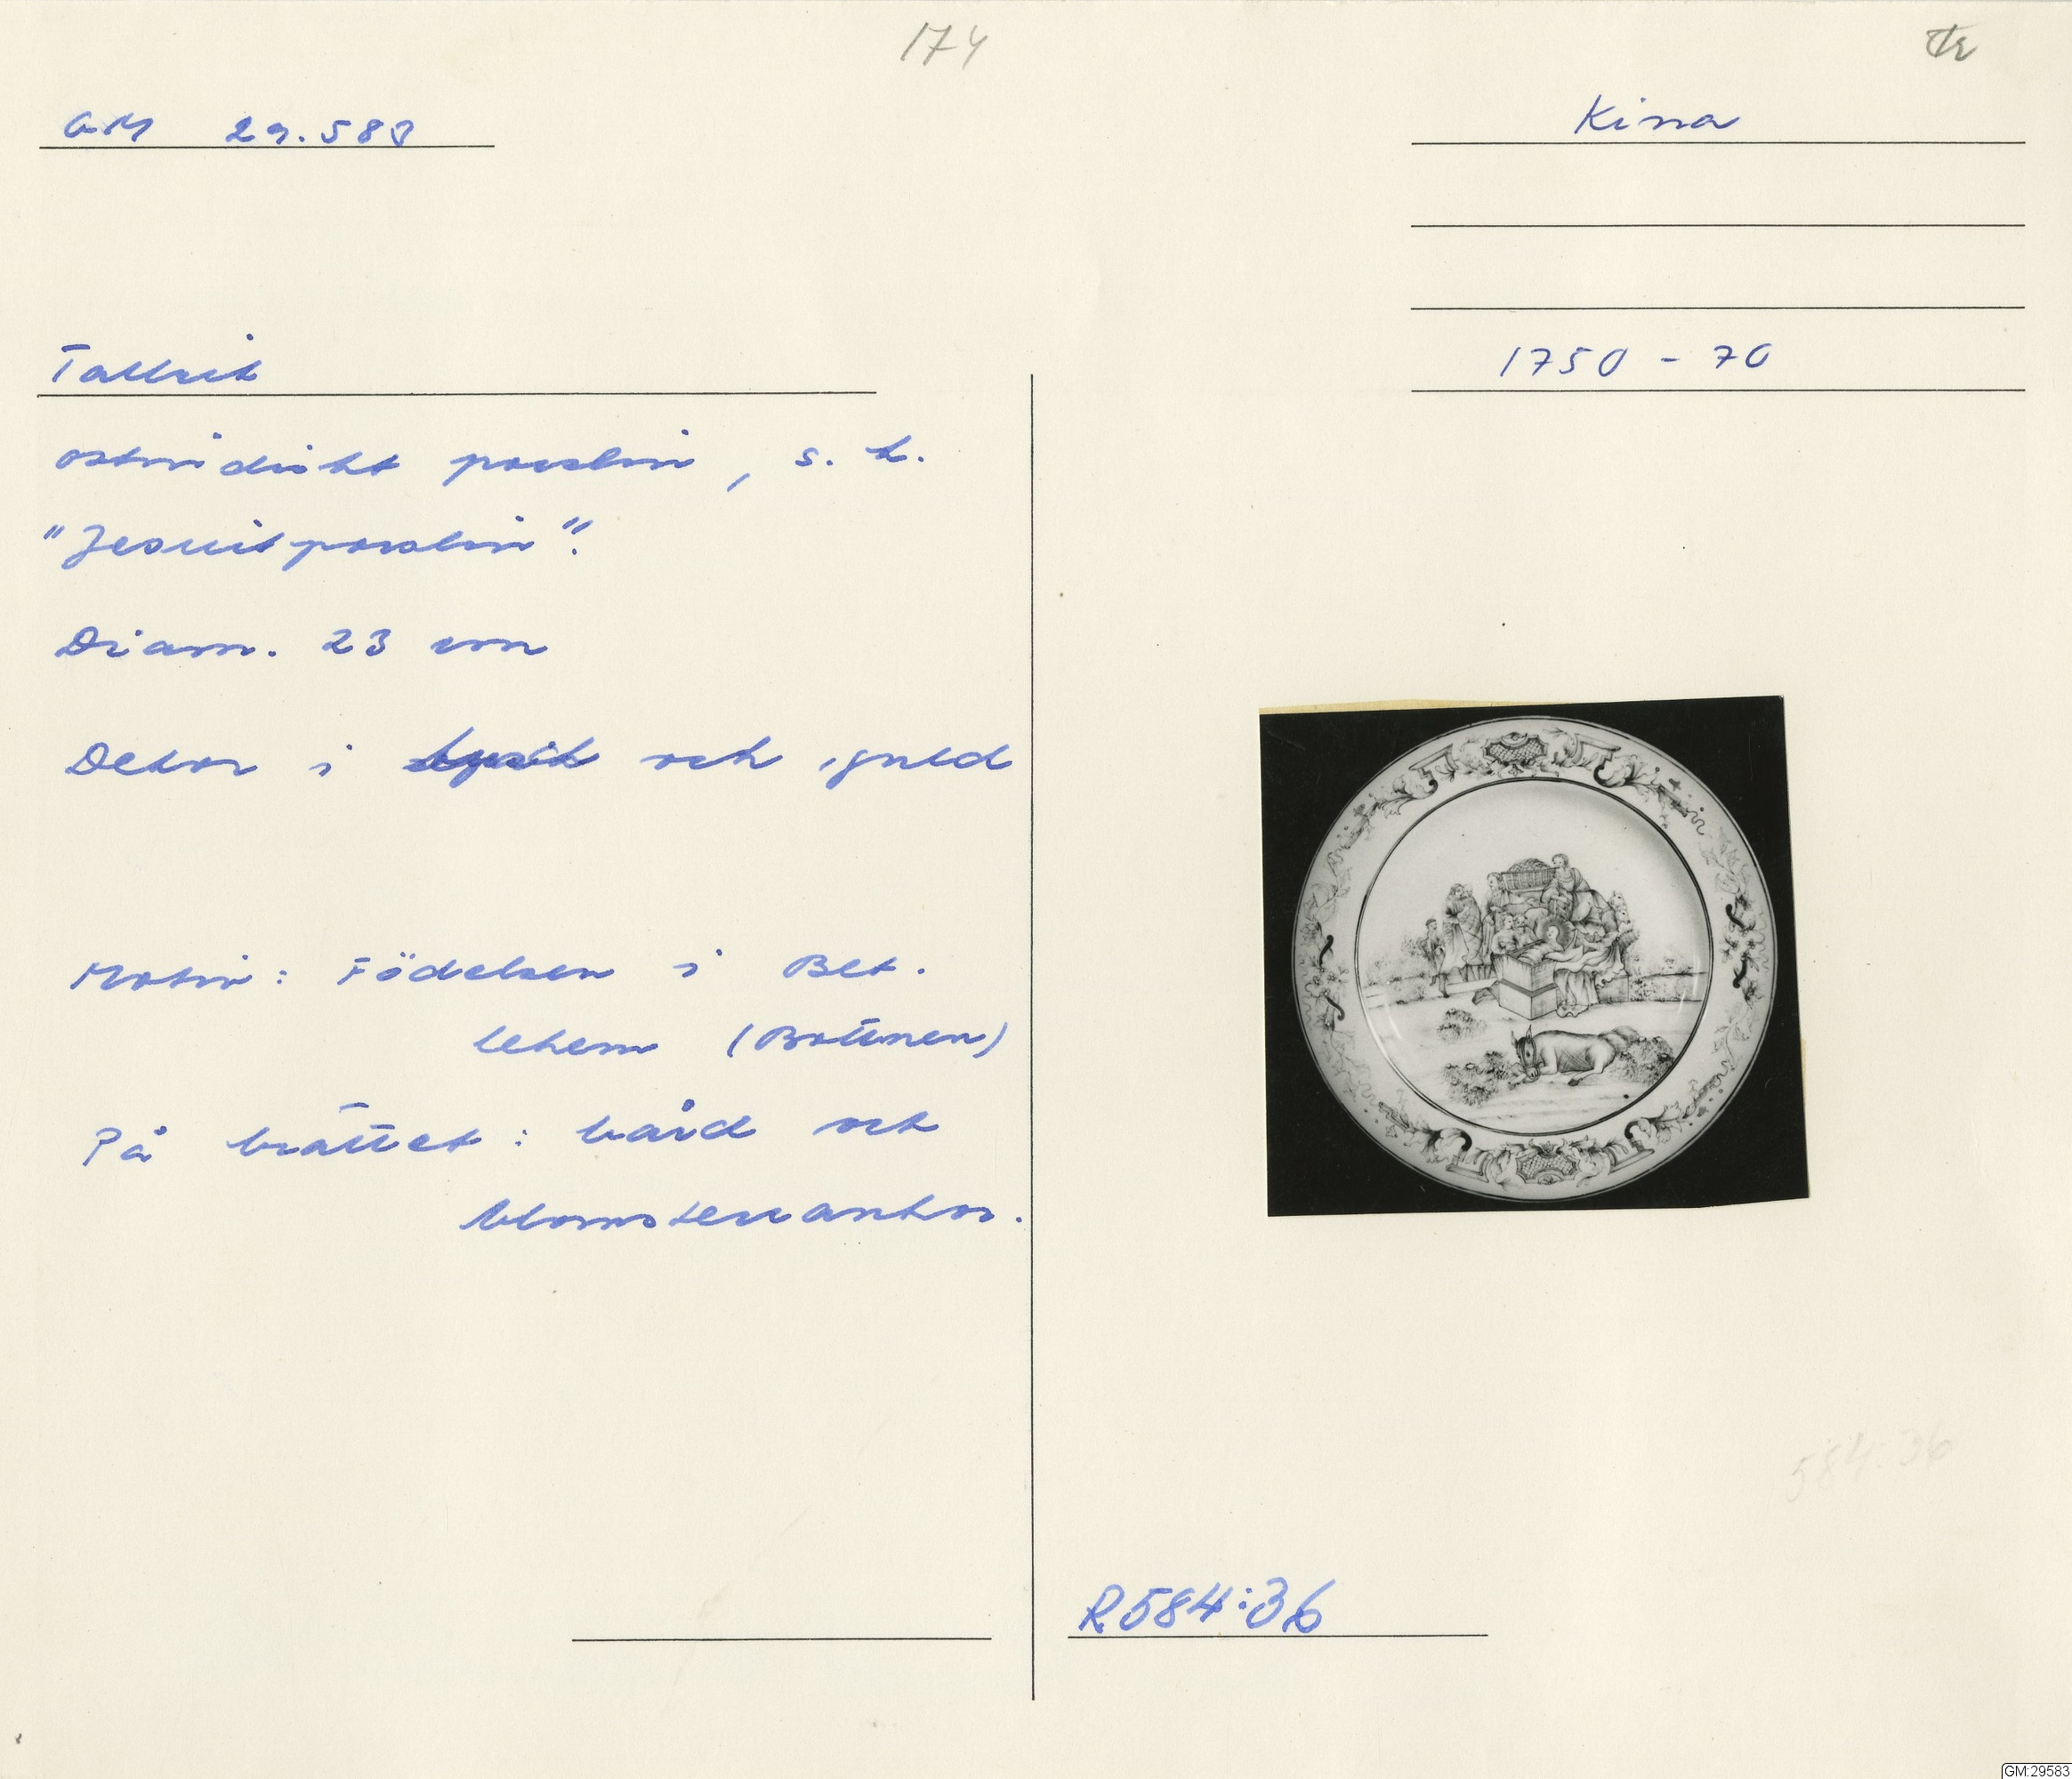 174
GM 29.583
Kina
1750 - 70
Tallrik
ostindiskt porslin, s. k.
"Jesuitporslin".
Diam. 23 cm
Dekor i och guld
Motiv: Födelsen i Bet.
lehem (Bottnen)
På brättet: bård och
blomsterrankor.
584:36
R584:36
GM:29583